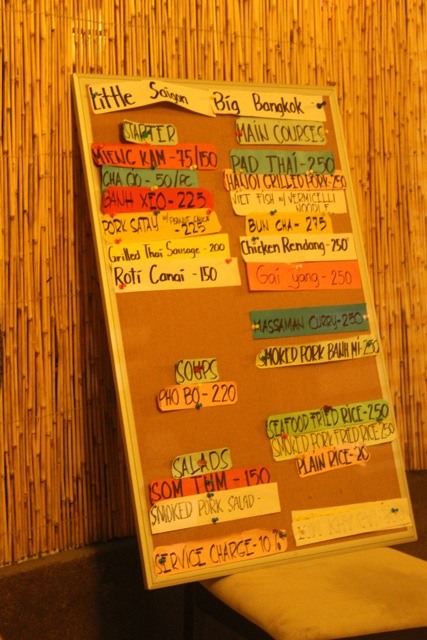 Little Saigon Big Bangkok
STARTER
MIENG KAM - 75/150
CHA GIO - 50/PC
BANH XEO - 225
PORK SATAY W/ PEANUT SAUCE - 225
Grilled Thai Sausage - 200
Roti Canai - 150
SOUPS
PHO BO - 220
SALADS
SOM TUM - 150
SMOKED PORK SALAD -
SERVICE CHARGE - 10%
MAIN COURSES
PAD THAI - 250
HANOI GRILLED PORK - 250
VIET FISH W/ VERMICELLI
NOODLE
BUN CHA - 275
Chicken Rendang - 250
Gai yang - 250
MASSAMAN CURRY - 250
SMOKED PORK BANH MI - 250
SEAFOOD FRIED RICE - 250
SMOKED PORK FRIED RICE 250
PLAIN RICE - 20